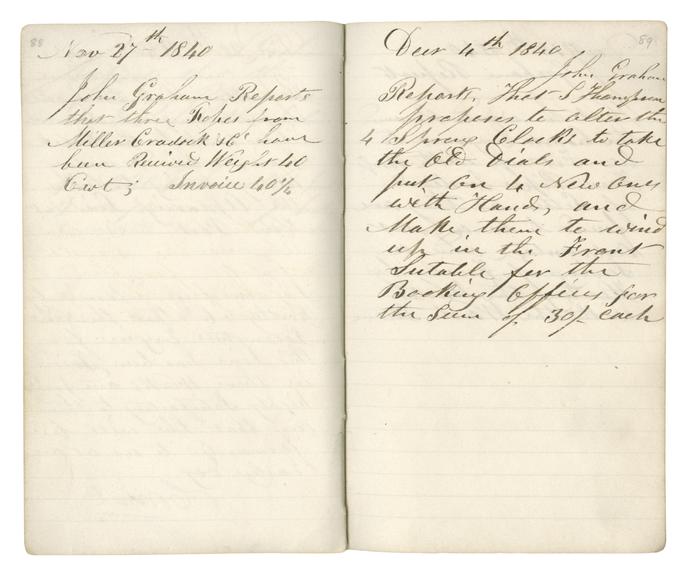 88
Nov 27th 1840
John Graham Reports
that three Ropes from
Miller Cradock &Co have
been Received Weight 40
Cwt; Invoice 40¼
89
Decr 4th 1840
John Graham
Reports, That S Thompson
proposes to alter the
4 Spring Clocks to take
the Old Dials and
put on 4 New Ones
with Hands, and
Make them to wind
up in the Front
Sutable for the
Booking Offices for
the Sum of 30/- each